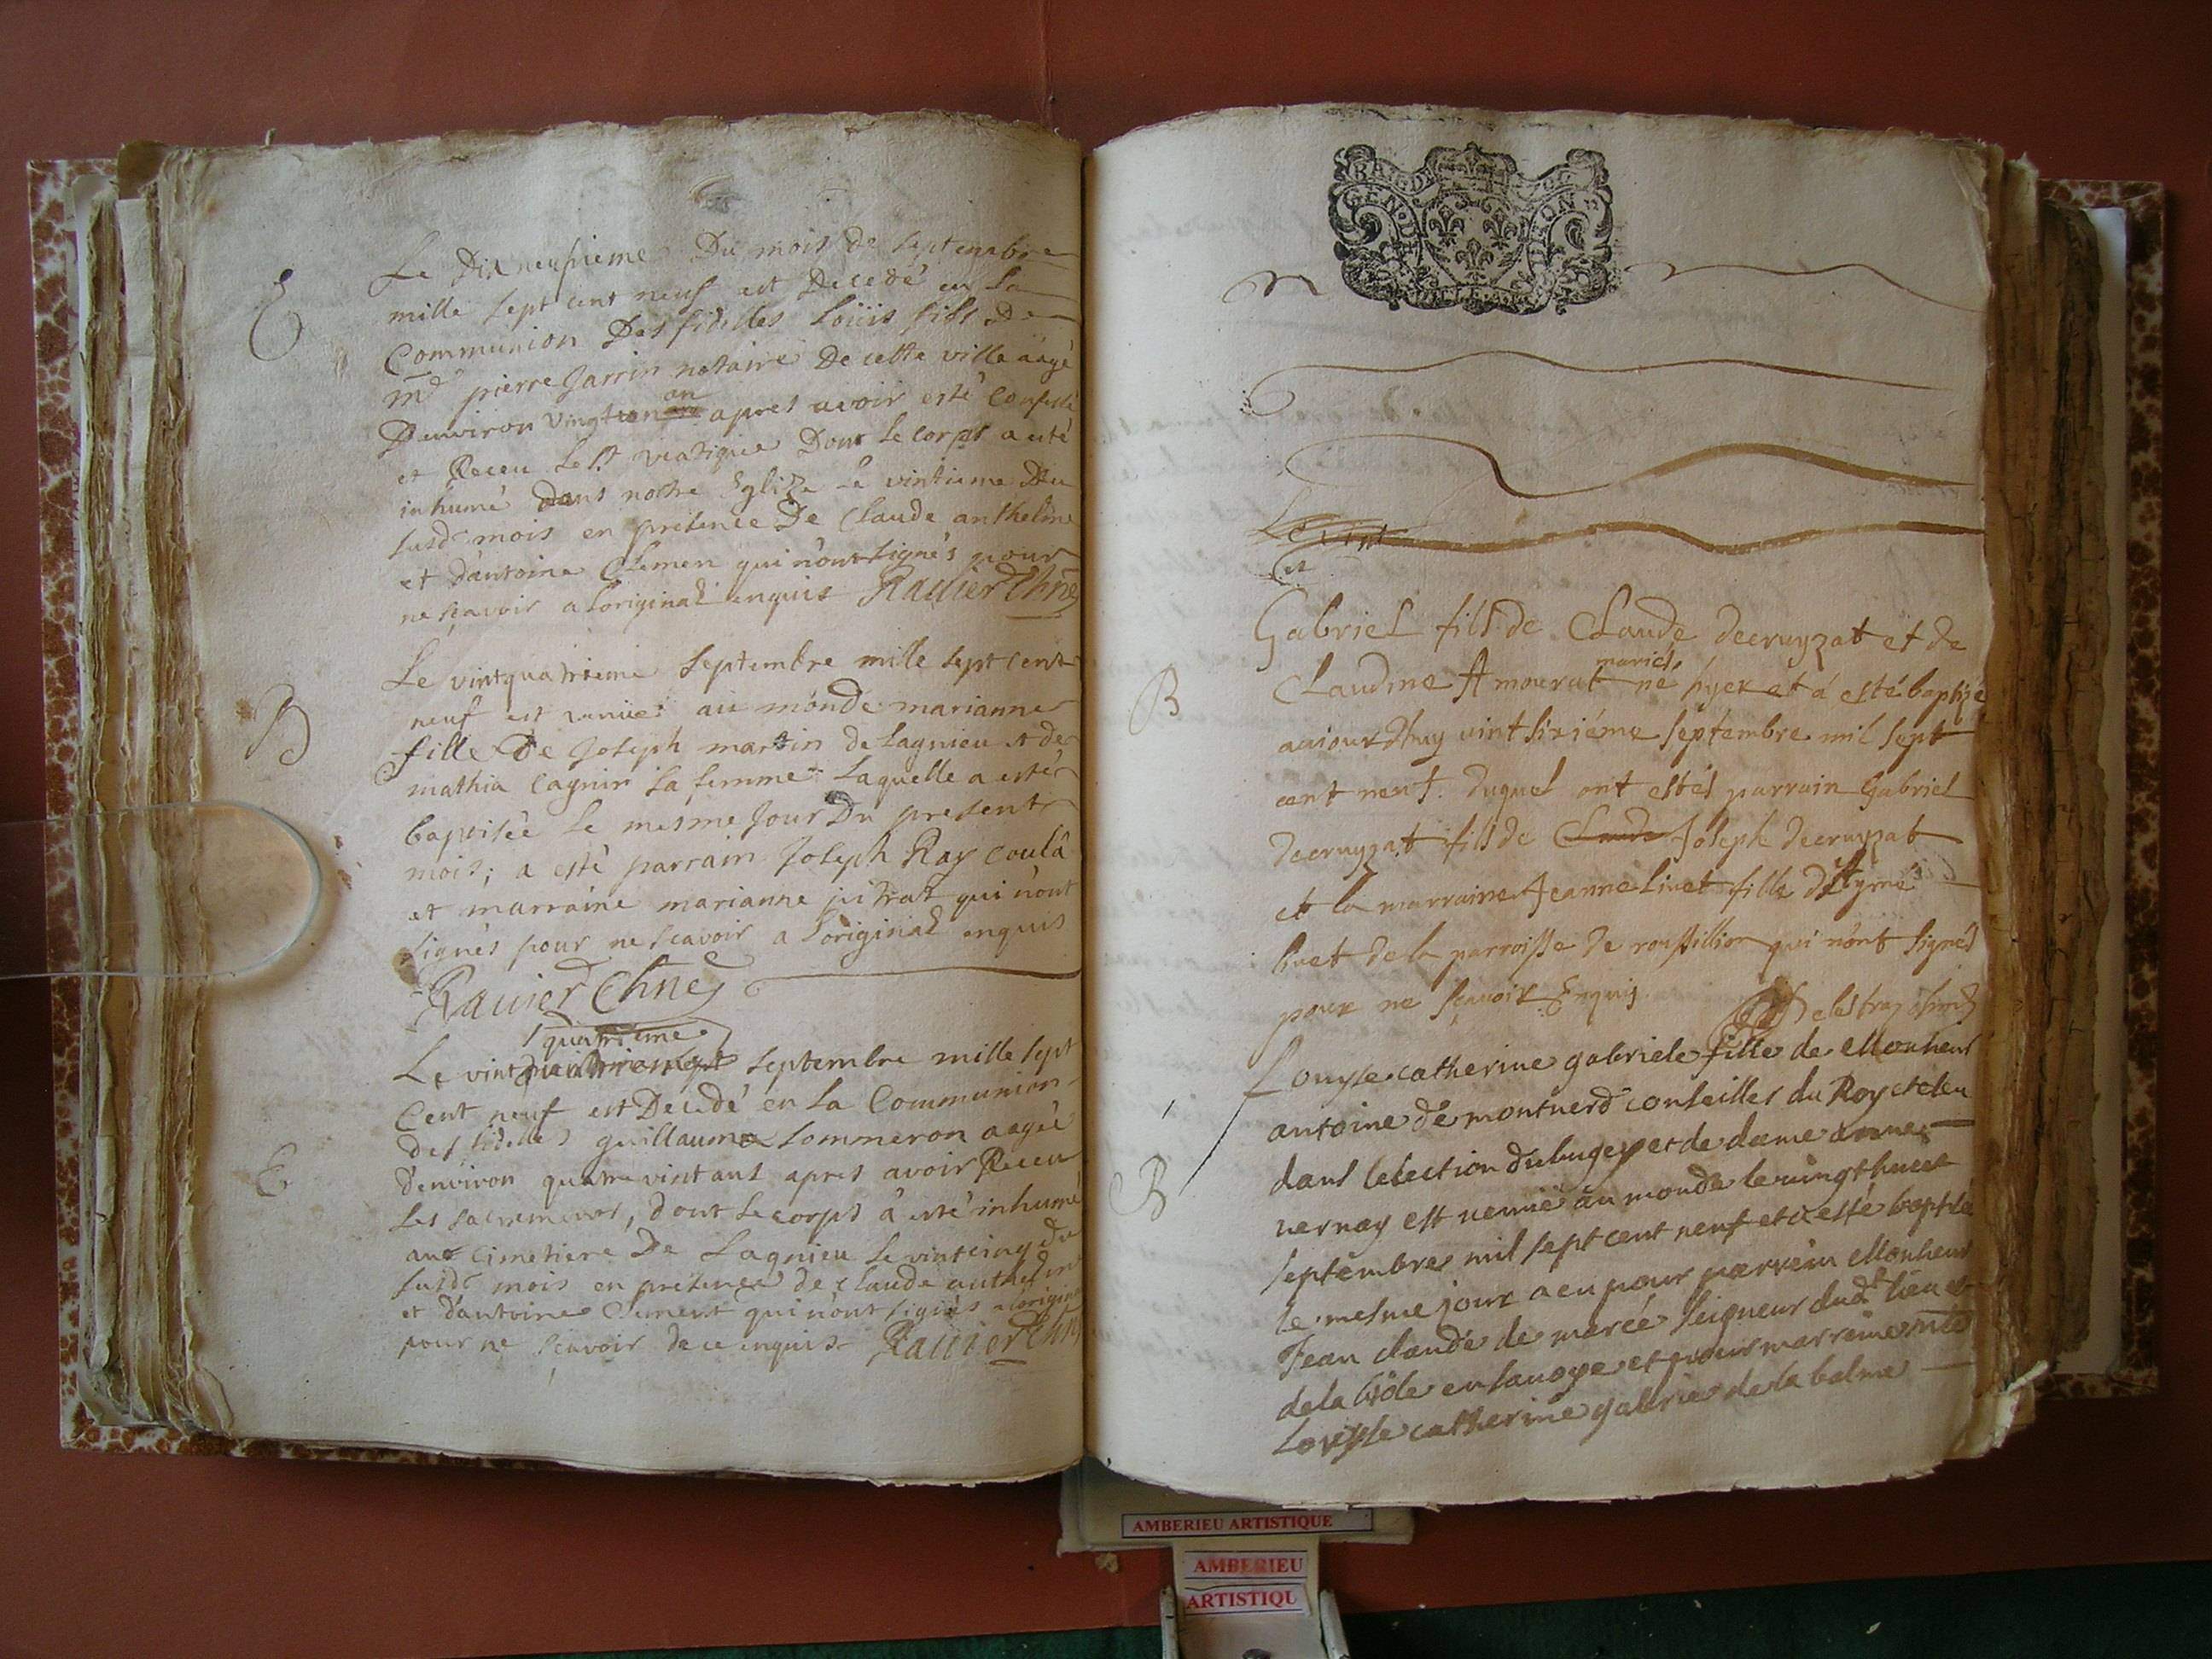 E
Le Dix neufieme Du mois de septembre
mille sept cent neuf est Decedé en la
Communion Des fidelles Loüis fils De
md pierre Jarrin notaire De cette ville aagé
D'environ vingt an apres avoir esté Confessé
et Receu le st viatique Dont le corps a esté
inhumé dans nostre Eglize Le vintieme Du
susd mois en presence De Claude anthelme
et d'antoine Clemen qui n'ont signés pour
ne sçavoir a l'original enquis Ravier Chne
B
Le vintquatrieme septembre mille sept cent
neuf est venue au monde marianne
fille De Joseph martin de Lagnieu et de
mathia Cagnin sa femme laquelle a esté
baptisée le mesme Jour Du present
mois; a esté parrain Joseph Ray
et marraine marianne jutrat qui n'ont
signés pour ne sçavoir a l'original enquis
Ravier Chne
quatrieme
Le vint septembre mille sept
Cent neuf est Decedé en la Communion
E
des fidelles guillaume Sommeron aagée
d'environ quatre vint ans apres avoir Receu
les sacrements, dont le corps a esté inhumé
au Cimetiere De Lagnieu le vintcinq du
susd mois en presence de Claude anthelme
et d'antoine Clement qui n'ont signés a l'original
pour ne sçavoir de ce enquis Ravier Chne
GEN
ON
Le vint
Le
Gabriel fils de Claude decruyzat et de
mariés
B
Claudine Amourat né hyer et á esté baptizé
auiourdhuy vint sixiéme septembre mil sept
cent neuf. duquel ont estés parrain Gabriel
decruyzat fils de Claude Joseph decruyzat
et la marraine Jeanne Livet fille d'Aymé
livet de la parroisse de roussillion qui n'ont signés
pour ne sçavoir Enquis.
Louyse catherine gabriele fille de Monsieur
antoine de montverd conseiller du Roy esleu
B
dans lelection dubugey et de dame anne
vernay est venue au monde le vingthuict
septembre mil sept cent neuf et a esté baptisé
le mesme jour a eu pour parrein Monsieur
Jean claude de marcé seigneur dudt lieu et
de la en savoye et pour marreine
Louyse catherine gabrie de la balme
AMBERIEU ARTISTIQUE
AMBERIEU
ARTISTIQU